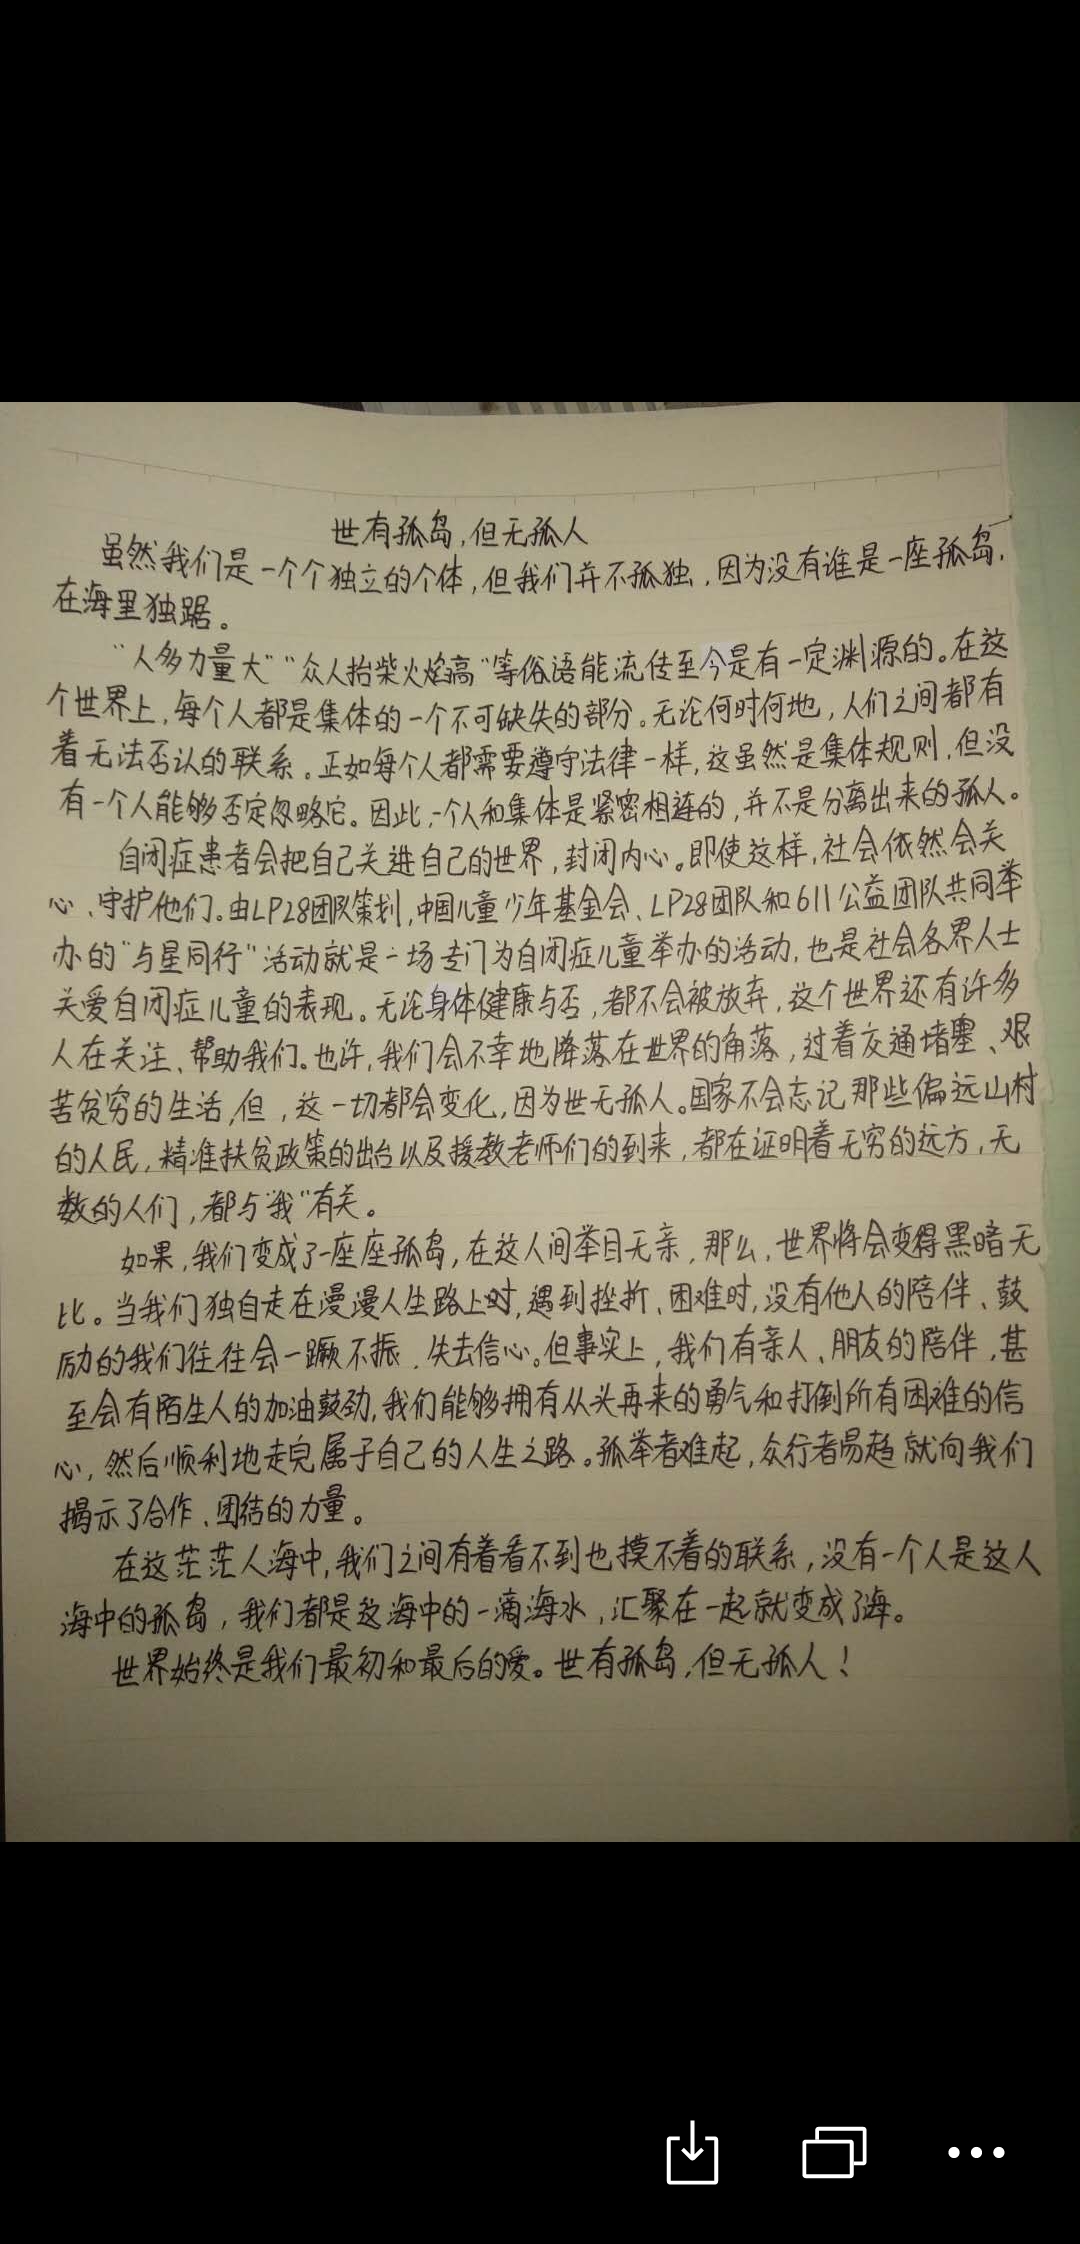 世有孤岛，但无孤人
虽然我们是一个个独立的个体，但我们并不孤独，因为没有谁是一座孤岛，
在海里独踞。
“人多力量大”“众人抬柴火焰高”等俗语能流传至今是有一定渊源的。在这
个世界上，每个人都是集体的一个不可缺失的部分。无论何时何地，人们之间都有
着无法否认的联系。正如每个人都需要遵守法律一样，这虽然是集体规则，但没
有一个人能够否定忽略它。因此，一个人和集体是紧密相连的，并不是分离出来的孤人。
自闭症患者会把自己关进自己的世界，封闭内心。即使这样，社会依然会关
心、守护他们。由LP28团队策划，中国儿童少年基金会、LP28团队和611公益团队共同举
办的“与星同行”活动就是一场专门为自闭症儿童举办的活动，也是社会各界人士
关爱自闭症儿童的表现。无论身体健康与否，都不会被放弃，这个世界还有许多
人在关注、帮助我们。也许，我们会不幸地降落在世界的角落，过着交通堵塞、艰
苦贫穷的生活，但，这一切都会变化，因为世无孤人。国家不会忘记那些偏远山村
的人民，精准扶贫政策的出台以及援教老师们的到来，都在证明着无穷的远方，无
数的人们，都与“我”有关。
如果，我们变成了一座座孤岛，在这人间举目无亲，那么，世界将会变得黑暗无
比。当我们独自走在漫漫人生路上时，遇到挫折、困难时，没有他人的陪伴、鼓
励的我们往往会一蹶不振，失去信心。但事实上，我们有亲人、朋友的陪伴，甚
至会有陌生人的加油鼓劲，我们能够拥有从头再来的勇气和打倒所有困难的信
心，然后顺利地走完属于自己的人生之路。孤举者难起，众行者易趋就向我们
揭示了合作、团结的力量。
在这茫茫人海中，我们之间有着看不到也摸不着的联系，没有一个人是这人
海中的孤岛，我们都是这海中的一滴海水，汇聚在一起就变成了海。
世界始终是我们最初和最后的爱。世有孤岛，但无孤人！